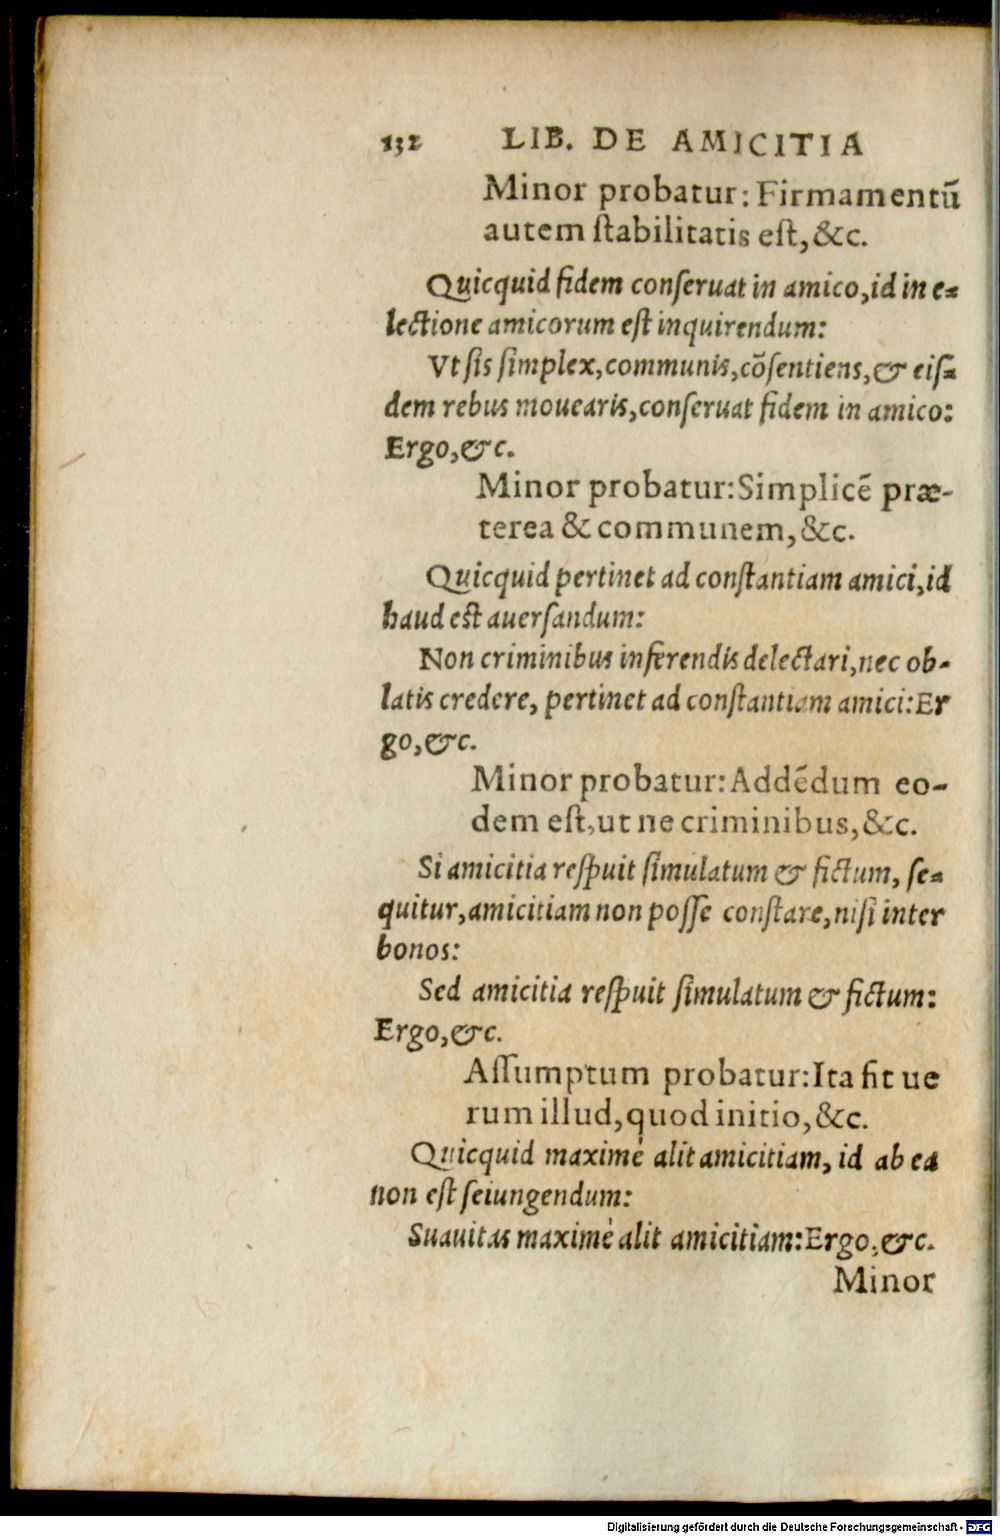 132 LIB. DE AMICITIA
Minor probatur: Firmamentū
autem ſtabilitatis eſt, &c.
Quicquid fidem conſeruat in amico, id in e-
lectione amicorum eſt inquirendum:
Vt ſis ſimplex, communis, cõſentiens, & eiſ-
dem rebus mouearis, conſeruat fidem in amico:
Ergo, &c.
Minor probatur: Simplicē præ-
terea & communem, &c.
Quicquid pertinet ad conſtantiam amici, id
haud est auerſandum:
Non criminibus inferendis delectari, nec ob-
latis credere, pertinet ad conſtantiam amici: Er
go, &c.
Minor probatur: Addēdum eo-
dem eſt, ut ne criminibus, &c.
Si amicitia reſpuit ſimulatum & fictum, ſe-
quitur, amicitiam non poſſe conſtare, niſi inter
bonos:
Sed amicitia reſpuit ſimulatum & fictum:
Ergo, &c.
Aſſumptum probatur: Ita fit ue
rum illud, quod initio, &c.
Quicquid maximè alit amicitiam, id ab ea
non eſt ſeiungendum:
Suauitas maximè alit amicitiam: Ergo, &c.
Minor
Digitalisierung gefördert durch die Deutsche Forschungsgemeinschaft - DFG